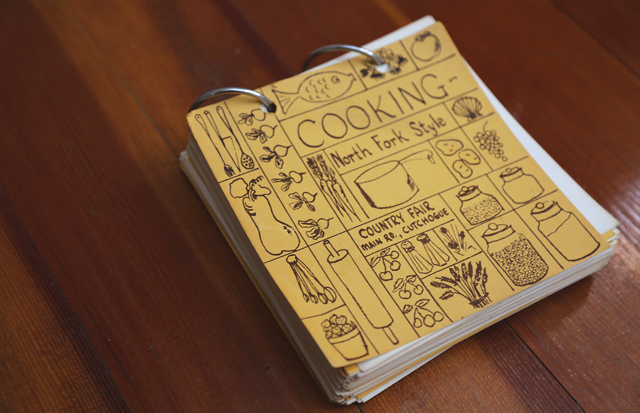 COOKING--
North Fork Style
COUNTRY FAIR
MAIN RD., CUTCHOGUE